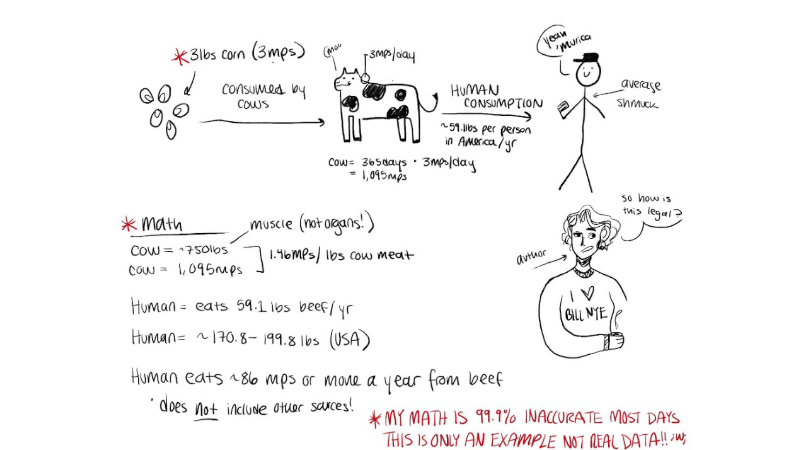 *3lbs corn (3mps)
(moo
3mps/day
yeah
'murica
CONSUMED by
COWS
HUMAN
CONSUMPTION
~59.1lbs per person
in America/yr
average
shmuck
COW= 365days · 3mps/day
= 1,095mps
*math
muscle (not organs!)
COW = ~750lbs
COW = 1,095mps
1.46mps/lbs cow meat
so how is
this legal?
author
I ♡
BILL NYE
Human= eats 59.1 lbs beef/yr
Human= ~170.8-199.8 lbs (USA)
Human eats ~86 mps or more a year from beef
· does not include other sources!
*MY MATH IS 99.9% INACCURATE MOST DAYS
THIS IS ONLY AN EXAMPLE NOT REAL DATA!! ;w;